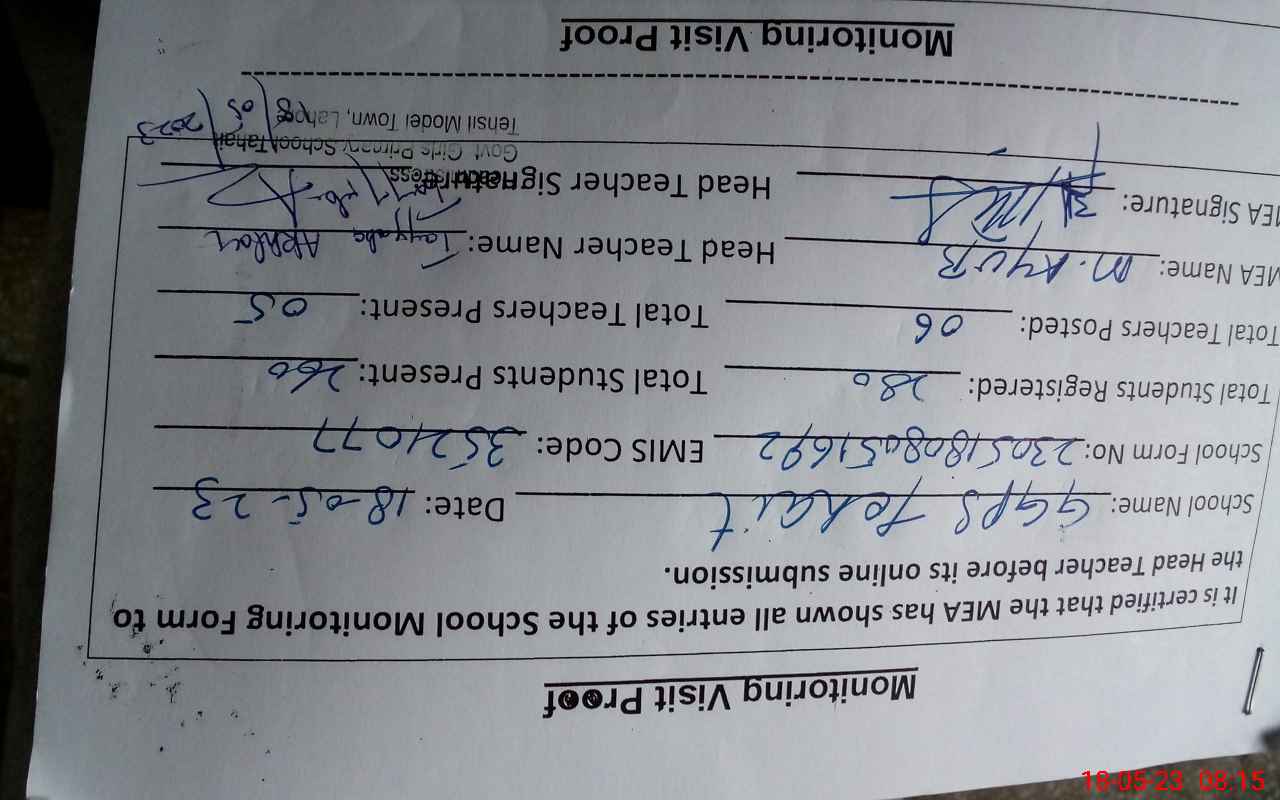 Monitoring Visit Proof
It is certified that the MEA has shown all entries of the School Monitoring Form to
the Head Teacher before its online submission.
School Name: GGPS Tahait Date: 18-05-23
School Form No: 23051808051692 EMIS Code: 3521077
Total Students Registered: 280 Total Students Present: 260
Total Teachers Posted: 06 Total Teachers Present: 05
MEA Name: M. Ayub Head Teacher Name: Tayyaba
MEA Signature: Head Teacher Signature:
Govt. Girls Primary School Tahait
Tehsil Model Town, Lahore
18/05/2023
Monitoring Visit Proof
18-05-23 08:15